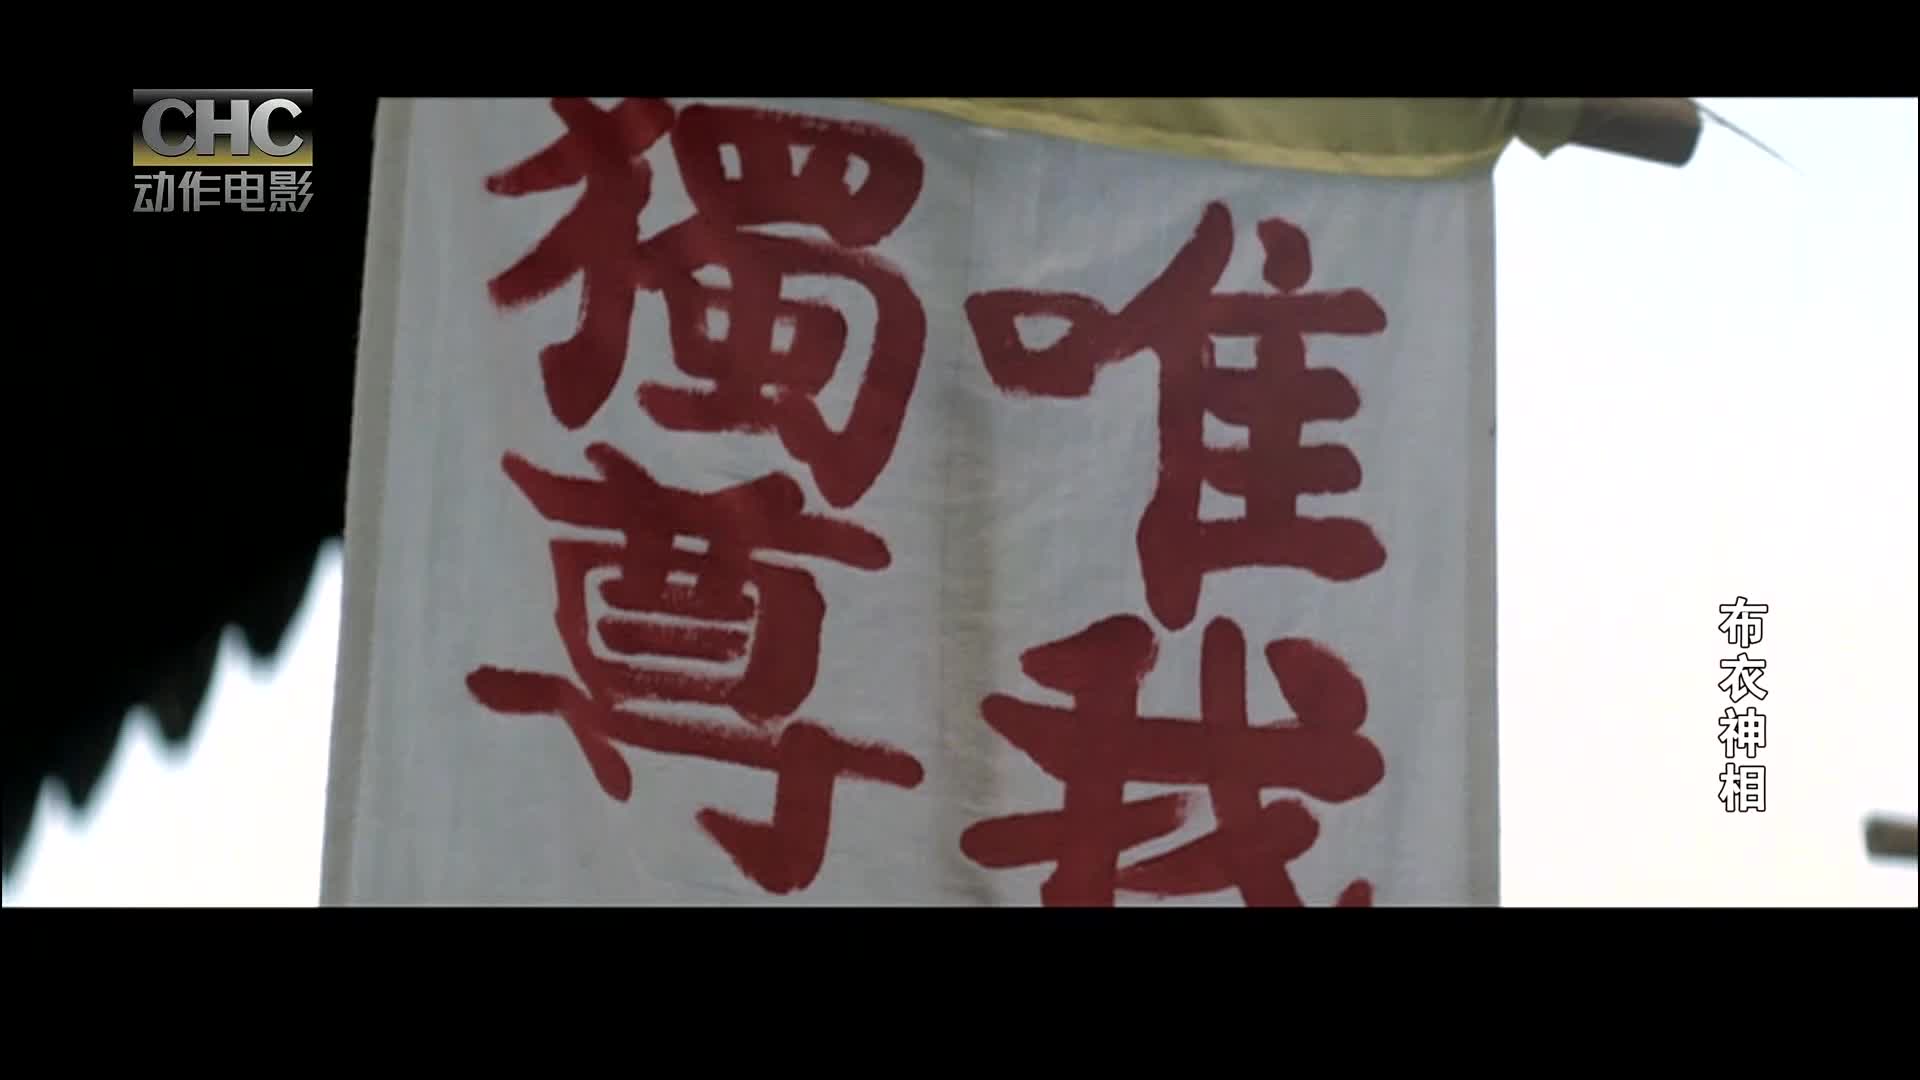 CHC
动作电影
唯我
獨尊
布衣神相